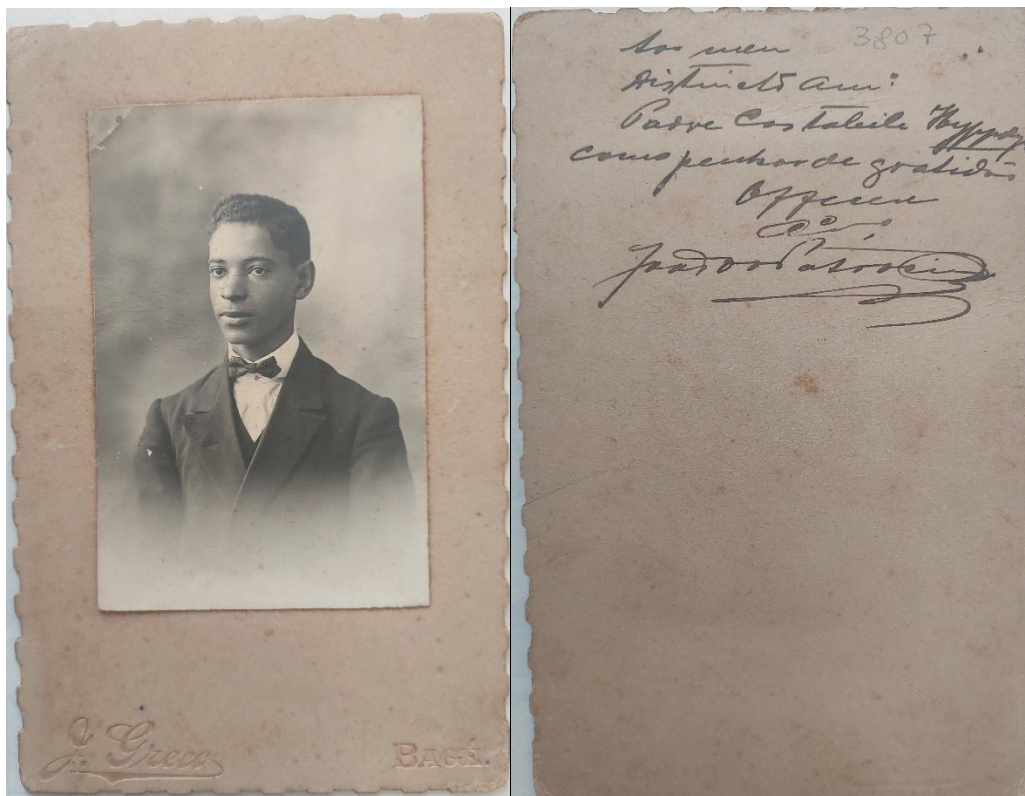 J. Greco
BAGÉ.
3807
Ao meu
distincto am:
Padre Costabile Hyppoly
como penhor de gratidão
Offerece
João do Patrocinio